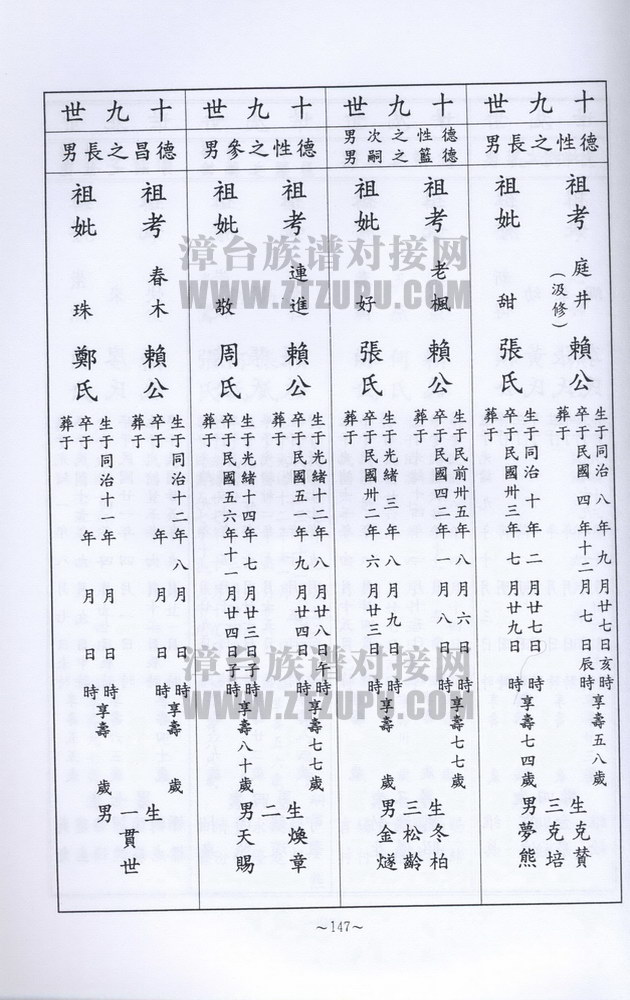 十九世
德性之長男
祖考 庭井(汲修) 賴公
生于同治八年九月廿七日亥時享壽五八歲
卒于民國四年十二月七日辰時
葬于
祖妣 甜 張氏
生于同治十年二月廿七日時享壽七四歲
卒于民國卅三年七月廿九日時
葬于
生三男
克贊
克培
夢熊
十九世
德性之次男
德籃之嗣男
祖考 老楓 賴公
生于民前卅五年八月六日時享壽七七歲
卒于民國四二年一月八日時
葬于
祖妣 好 張氏
生于光緒三年八月九日時享壽 歲
卒于民國卅二年六月廿三日時
葬于
生三男
冬柏
松齡
金燧
十九世
德性之參男
祖考 連進 賴公
生于光緒十二年八月廿八日午時享壽七七歲
卒于民國五一年九月廿四日時
葬于
祖妣 敬 周氏
生于光緒十四年七月廿三日子時享壽八十歲
卒于民國五六年十月廿四日子時
葬于
生二男
煥章
天賜
十九世
德昌之長男
祖考 春木 賴公
生于同治十二年八月 日時享壽 歲
卒于 年 月 日時
葬于
祖妣 珠 鄭氏
生于同治十一年 月 日時享壽 歲
卒于 年 月 日時
葬于
生 男
貫世
～147～
漳台族谱对接网
WWW.ZTZUPU.COM
漳台族谱对接网
WWW.ZTZUPU.COM